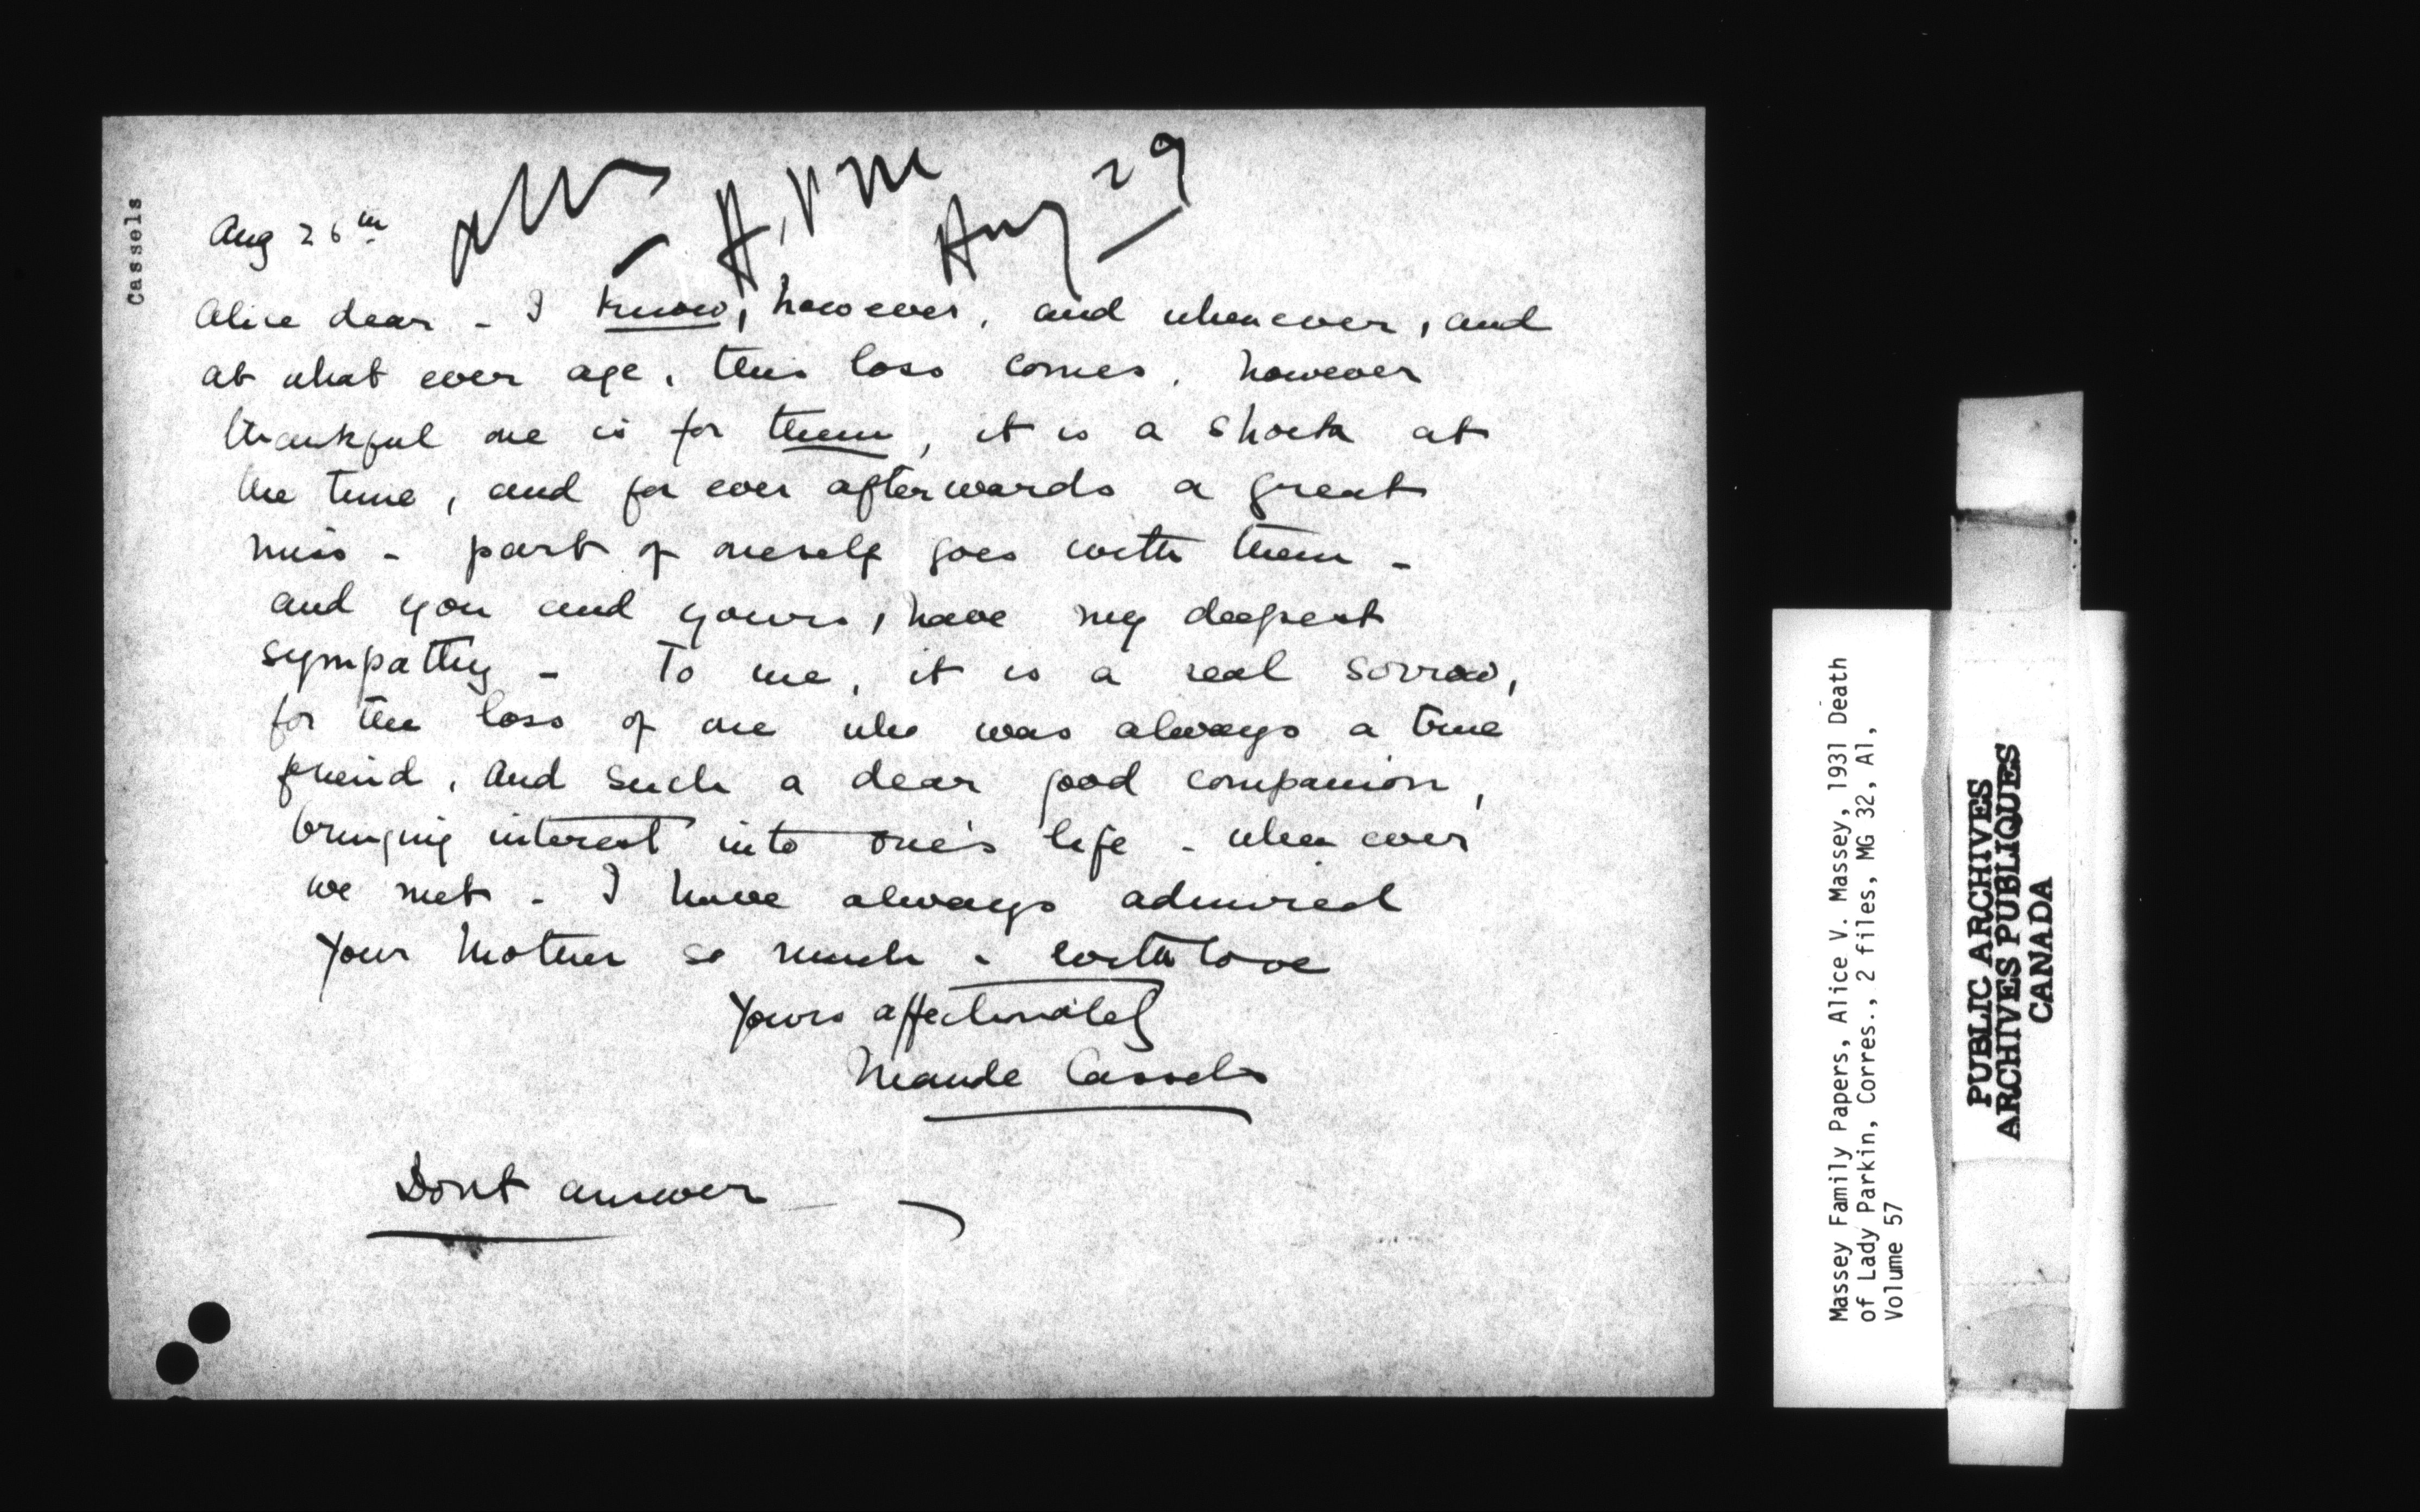 Cassels
Aug 26th
Aug 29
Alice dear - I know, however, and whenever, and
at what ever age, this loss comes, however
thankful one is for them, it is a shock at
the time, and for ever afterwards a great
miss - part of oneself goes with them -
and you and yours, have my deepest
sympathy - To me, it is a real sorrow,
for the loss of one who was always a true
friend, and such a dear good companion,
bringing interest into one's life - when ever
we met - I have always admired
your Mother so much - with love
Yours affectionately
Maude Cassels
Dont answer -
Massey Family Papers, Alice V. Massey, 1931 Death
of Lady Parkin, Corres., 2 files, MG 32, A1,
Volume 57
PUBLIC ARCHIVES
ARCHIVES PUBLIQUES
CANADA